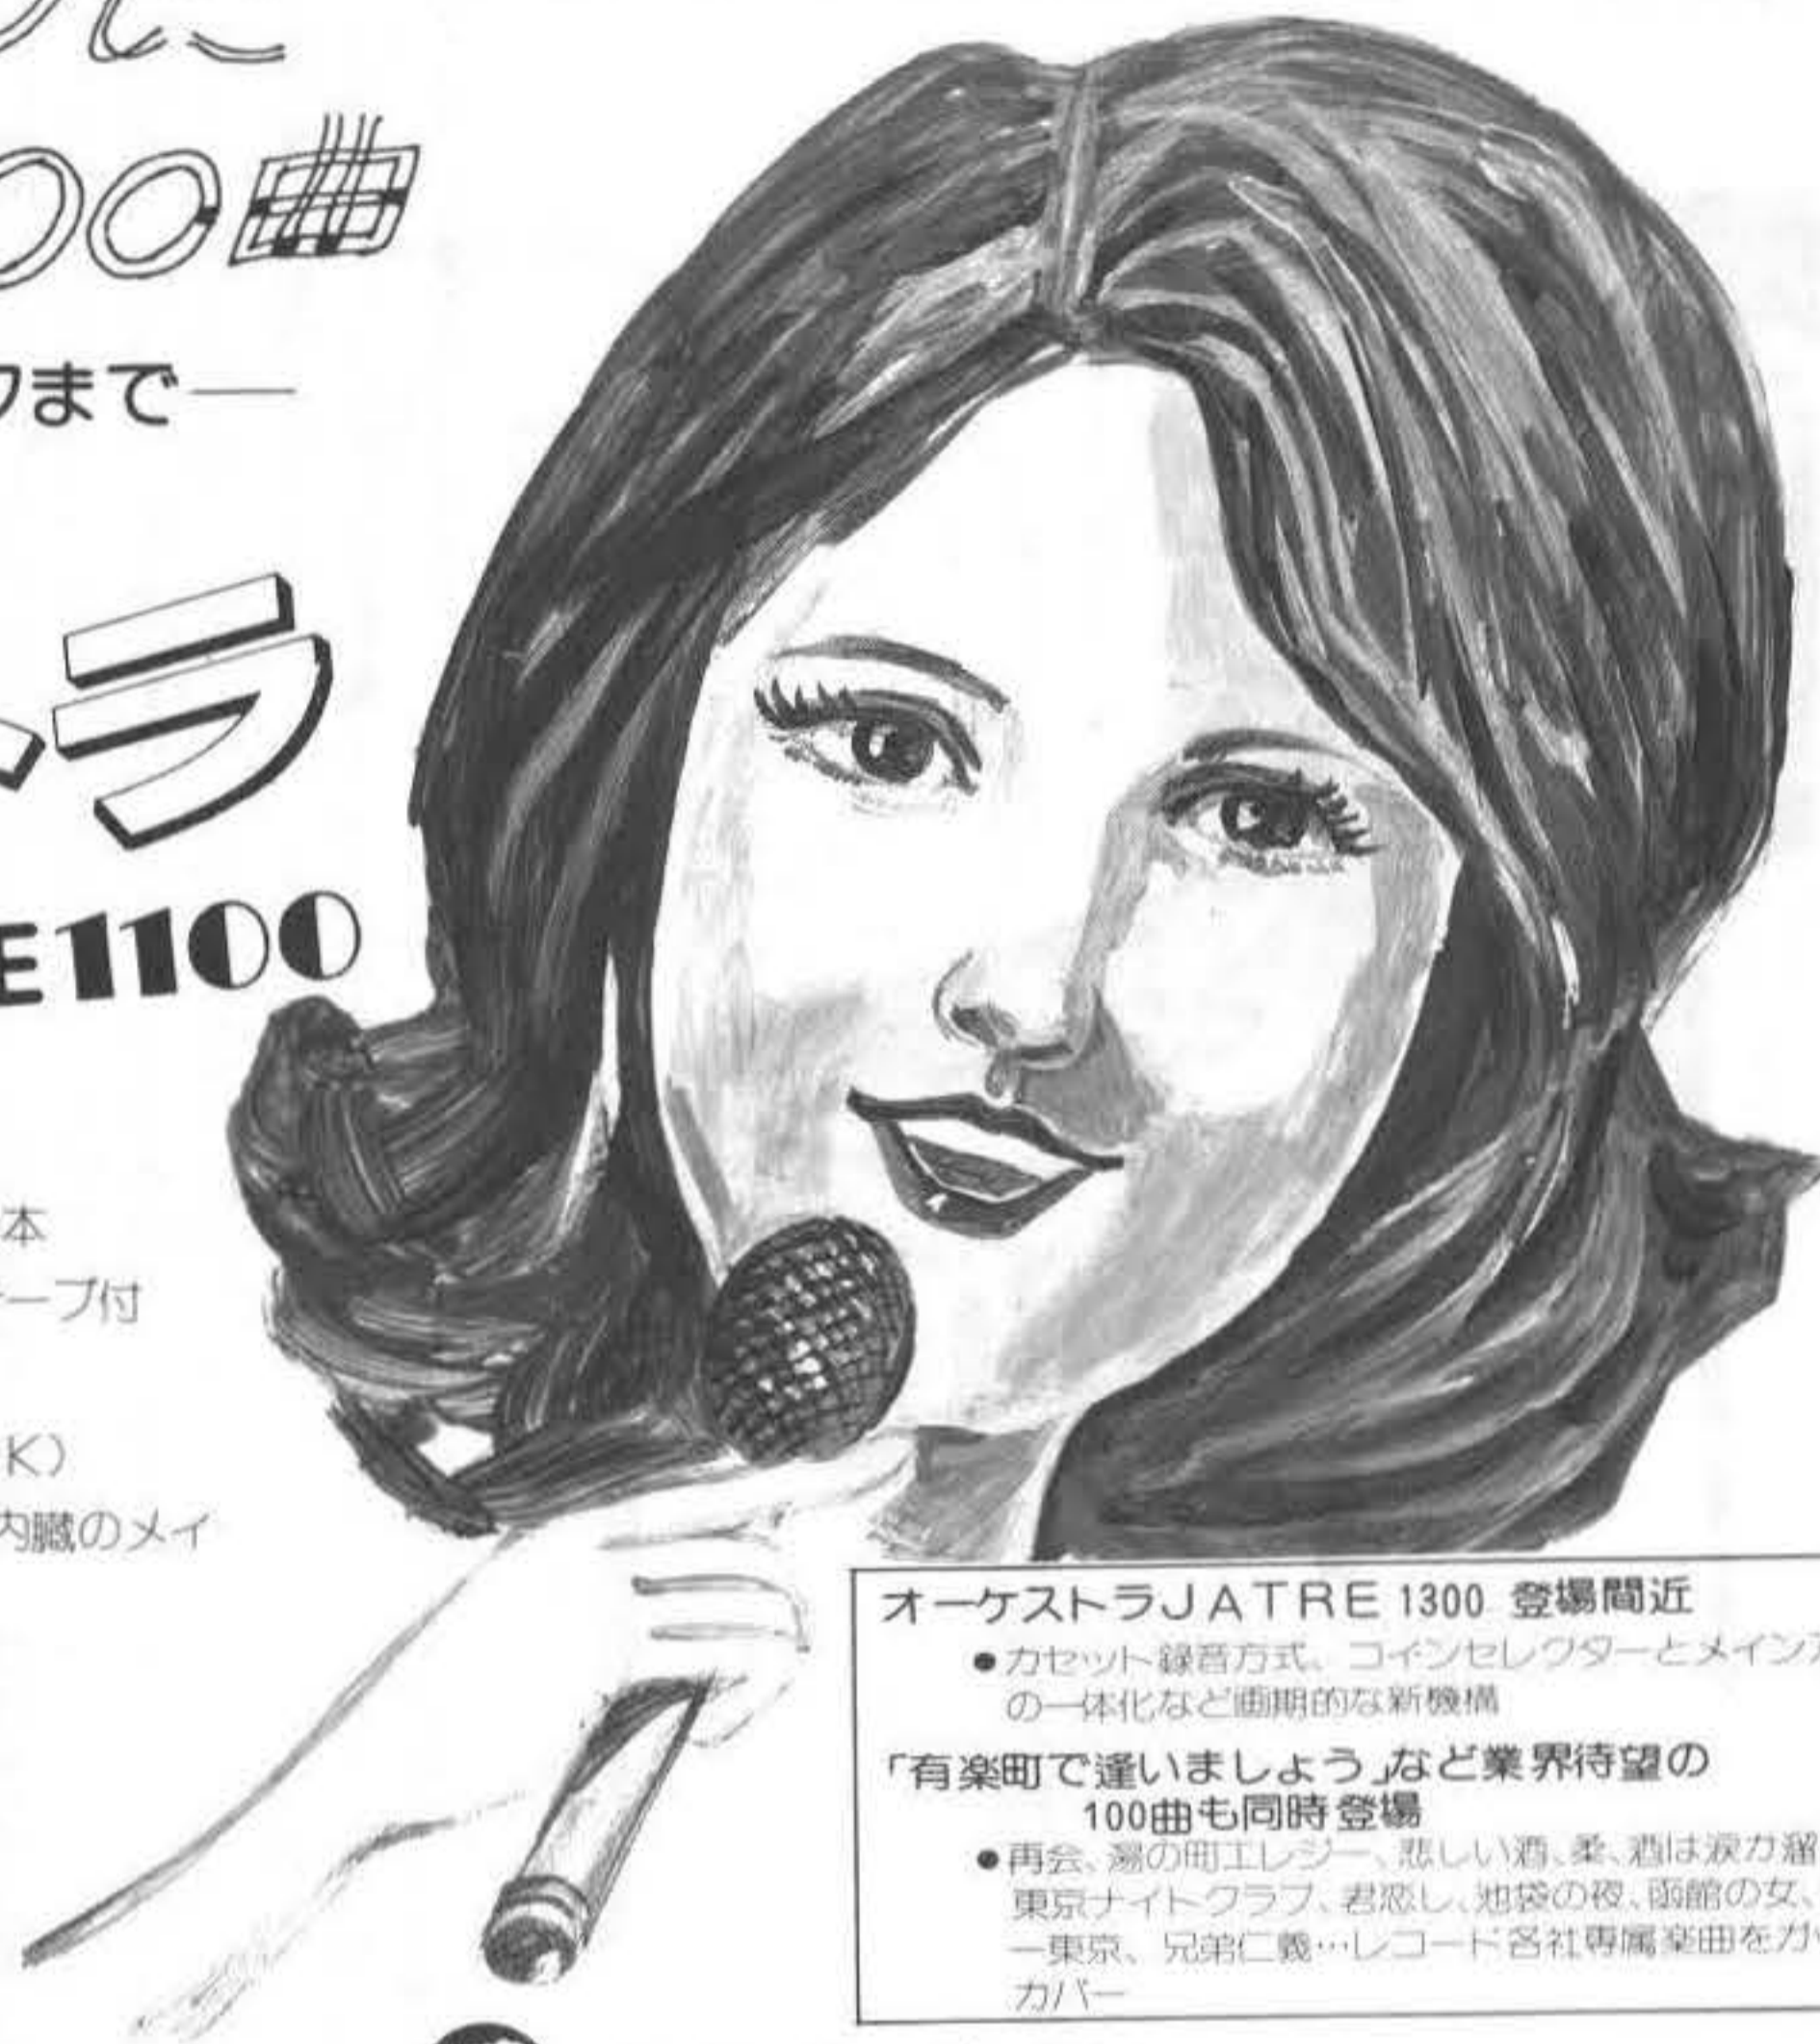 00曲
まで—
ラ
E1100
本
ープ付
K)
内臓のメイ
オーケストラJATRE 1300 登場間近
●カセット録音方式、コインセレクターとメイン
の一体化など画期的な新機構
「有楽町で逢いましょう」など業界待望の
100曲も同時登場
●再会、湯の町エレジー、悲しい酒、柔、酒は涙か溜
東京ナイトクラブ、君恋し、池袋の夜、函館の女、
ー東京、兄弟仁義…レコード各社専属楽曲をが
カバー